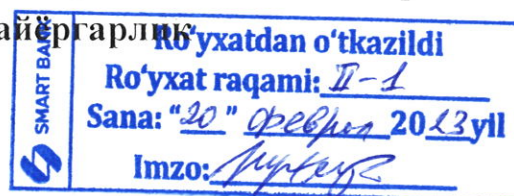 айёргарлик
SMART BASE
Ro‘yxatdan o‘tkazildi
Ro‘yxat raqami: II-1
Sana: “20” феврал 2023 yil
Imzo: